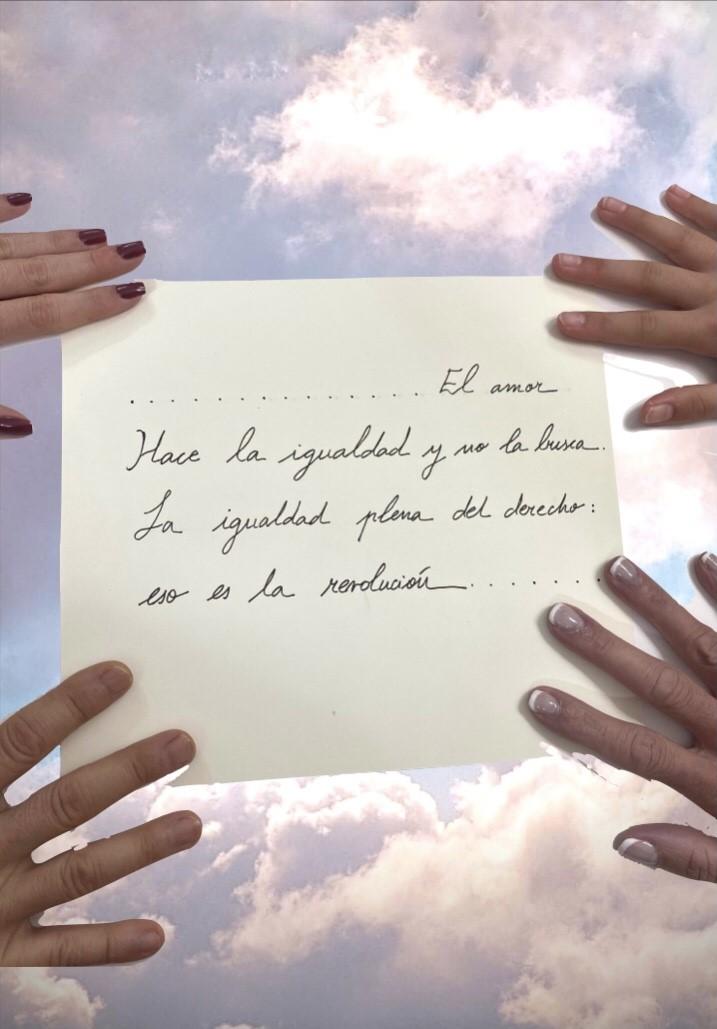 . . . . . . . . . . . . . . . El amor
Hace la igualdad y no la busca.
La igualdad plena del derecho:
eso es la revolución . . . . . . .